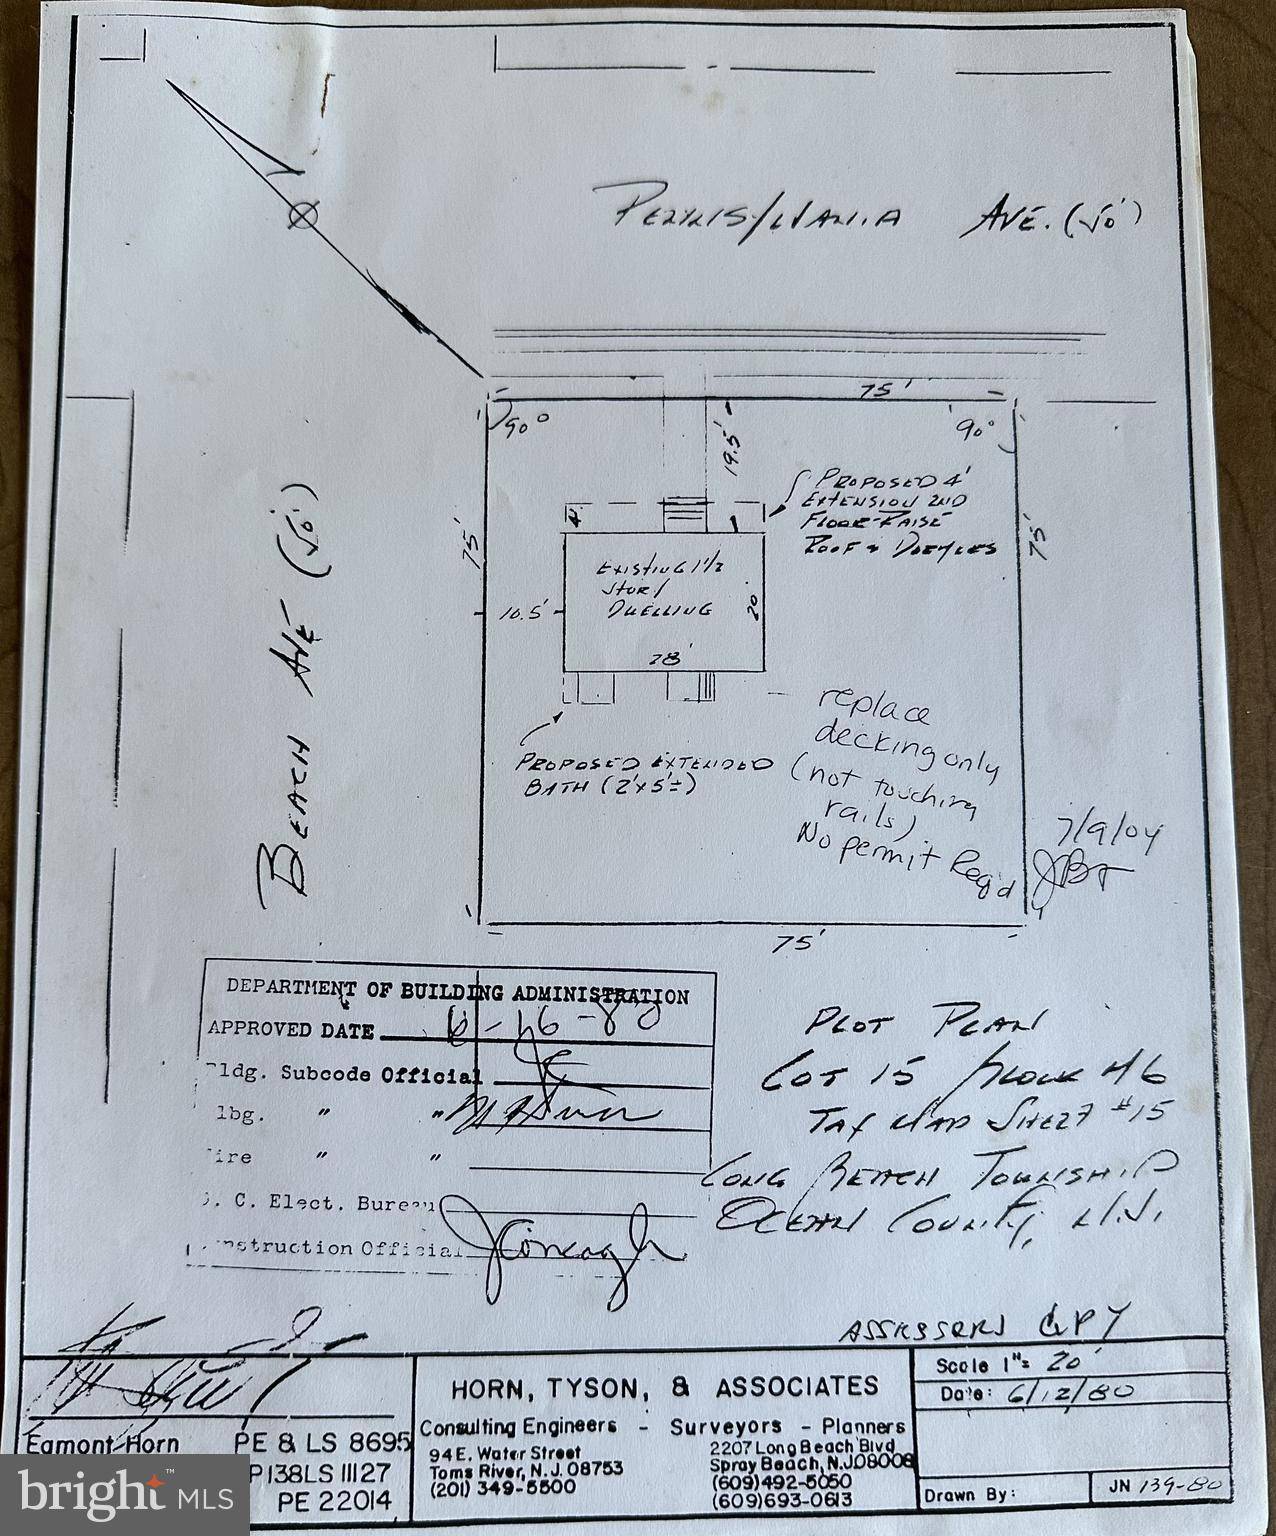 PENNSYLVANIA AVE. (50')
75'
90°
90°
19.5'
PROPOSED 4'
EXTENSION 2ND
FLOOR-RAISE
ROOF & DORMERS
4'
75'
75'
EXISTING 1½
STORY
DWELLING
20'
10.5'
28'
BEACH AVE (50')
replace
decking only
(not touching
rails)
No permit Req'd
7/9/04
PROPOSED EXTENDED
BATH (2'x5'±)
75'
DEPARTMENT OF BUILDING ADMINISTRATION
APPROVED DATE 6-16-80
ldg. Subcode Official
lbg. " "
ire " "
. C. Elect. Bureau
nstruction Official
PLOT PLAN
LOT 15 BLOCK 46
TAX MAP SHEET #15
LONG BEACH TOWNSHIP
OCEAN COUNTY, N.J.
ASSESSORS COPY
Egmont Horn PE & LS 8695
P 138 LS 11127
PE 22014
HORN, TYSON, & ASSOCIATES
Consulting Engineers - Surveyors - Planners
94 E. Water Street
Toms River, N.J. 08753
(201) 349-5500
2207 Long Beach Blvd
Spray Beach, N.J. 08008
(609) 492-5050
(609) 693-0613
Scale 1"= 20'
Date: 6/12/80
Drawn By:
JN 139-80
bright MLS